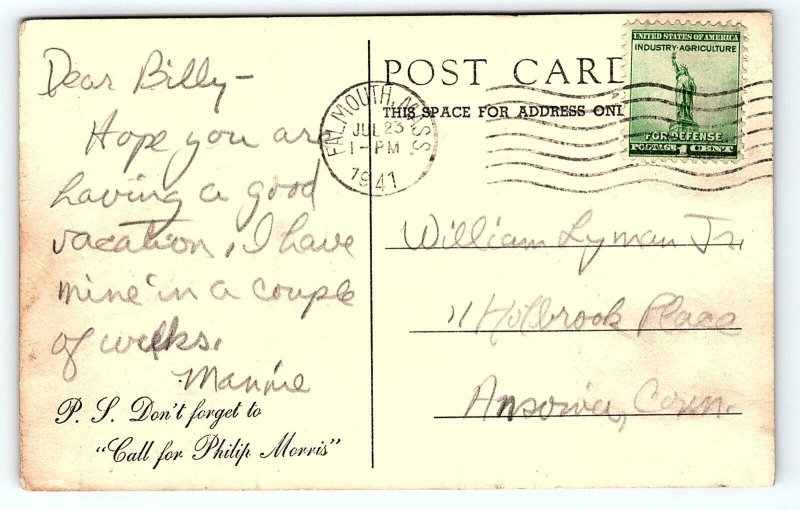 Dear Billy-
Hope you are
having a good
vacation, I have
mine in a couple
of weeks.
Mannie
P. S. Don't forget to
"Call for Philip Morris"
POST CARD
THIS SPACE FOR ADDRESS ONL
FALMOUTH, MASS.
JUL 23
1-PM
1941
UNITED STATES OF AMERICA
INDUSTRY-AGRICULTURE
FOR DEFENSE
POSTAGE 1 CENT
William Lyman Jr.
11 Holbrook Place
Ansonia, Conn.